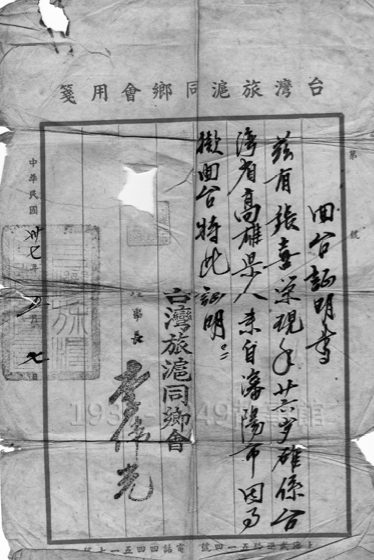 台灣旅滬同鄉會用箋
第 號
囬台証明書
茲有張喜榮現年廿六岁確係台
灣省高雄県人来自瀋陽市因而
擬囬台特此証明
台灣旅滬同鄉會
理事長 李偉光
中華民國卅七年 月 日
電話四四五一七號